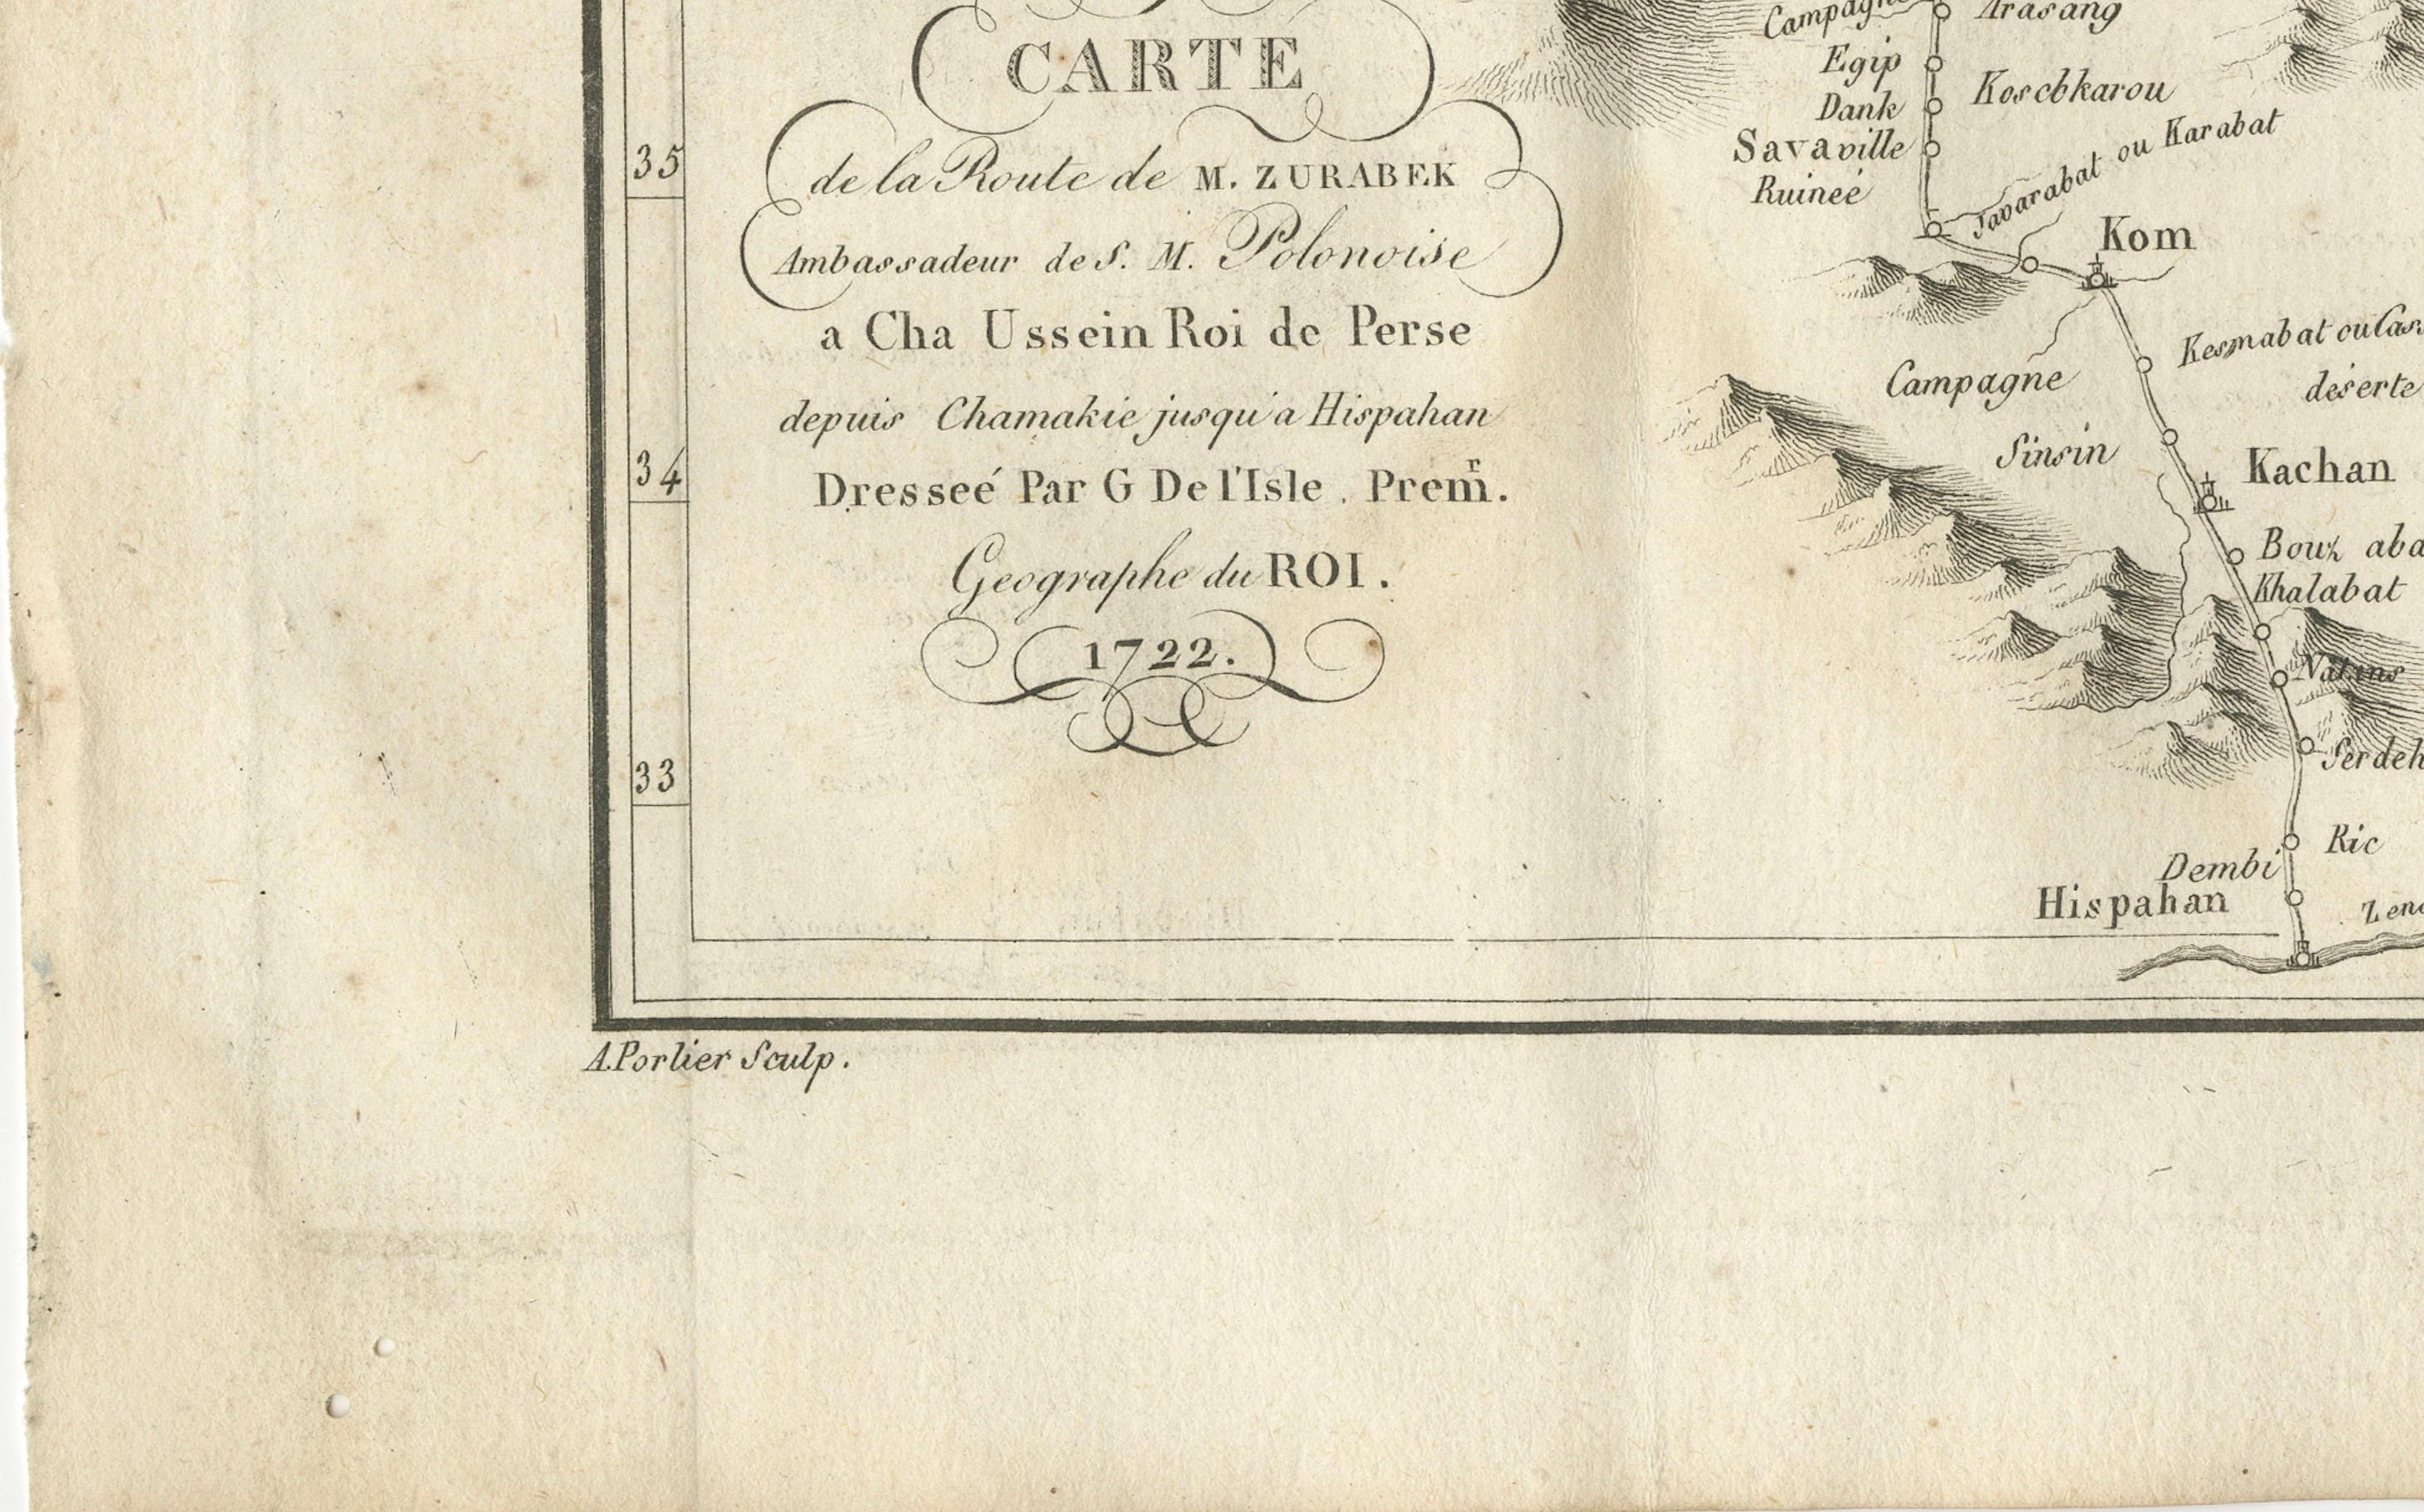 CARTE
de la Route de M. ZURABEK
Ambassadeur de S. M. Polonoise
a Cha Ussein Roi de Perse
depuis Chamakie jusqu'a Hispahan
Dresseé Par G De l'Isle . Premr.
Geographe du ROI.
1722.
35
34
33
Campagne
Arasang
Egip
Dank
Koschkarou
Savaville
Ruineé
Javarabat ou Karabat
Kom
Kesmabat ou
déserte
Campagne
Sinsin
Kachan
Bouz
Khalabat
Natens
Ric
Dembi
Hispahan
A.Porlier Sculp.